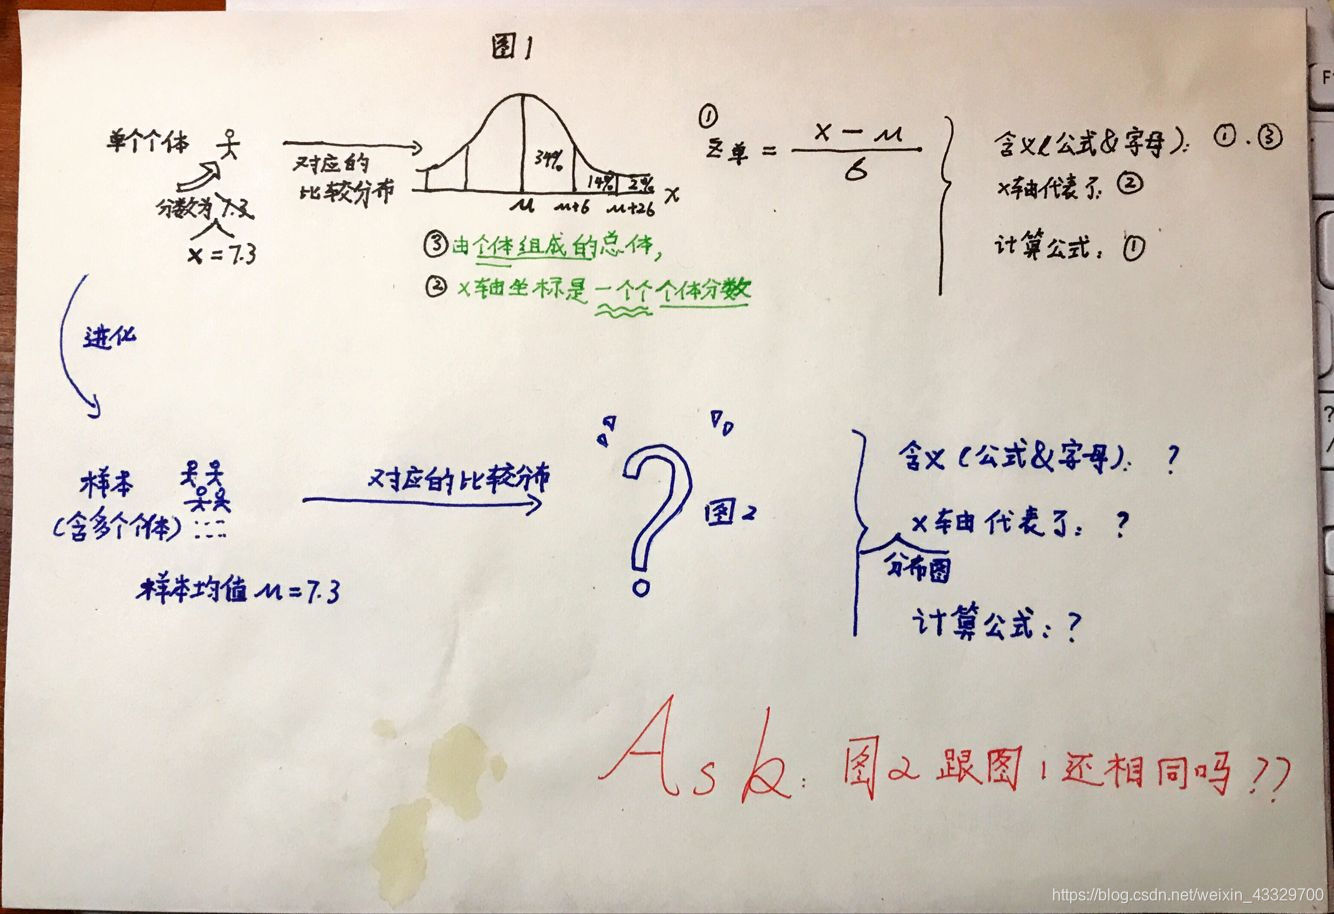 图1
单个个体
分数为 7.3
x = 7.3
对应的
比较分布
34%
14%
2%
μ μ+σ μ+2σ x
③由个体组成的总体,
② x轴坐标是一个个个体分数
①
Z单 = (x - μ) / σ
含义(公式&字母): ①.③
x轴代表了: ②
计算公式: ①
进化
样本
(含多个个体)
样本均值 μ = 7.3
对应的比较分布
?
图2
含义(公式&字母): ?
x轴代表了: ?
分布图
计算公式: ?
Ask: 图2跟图1还相同吗??
https://blog.csdn.net/weixin_43329700